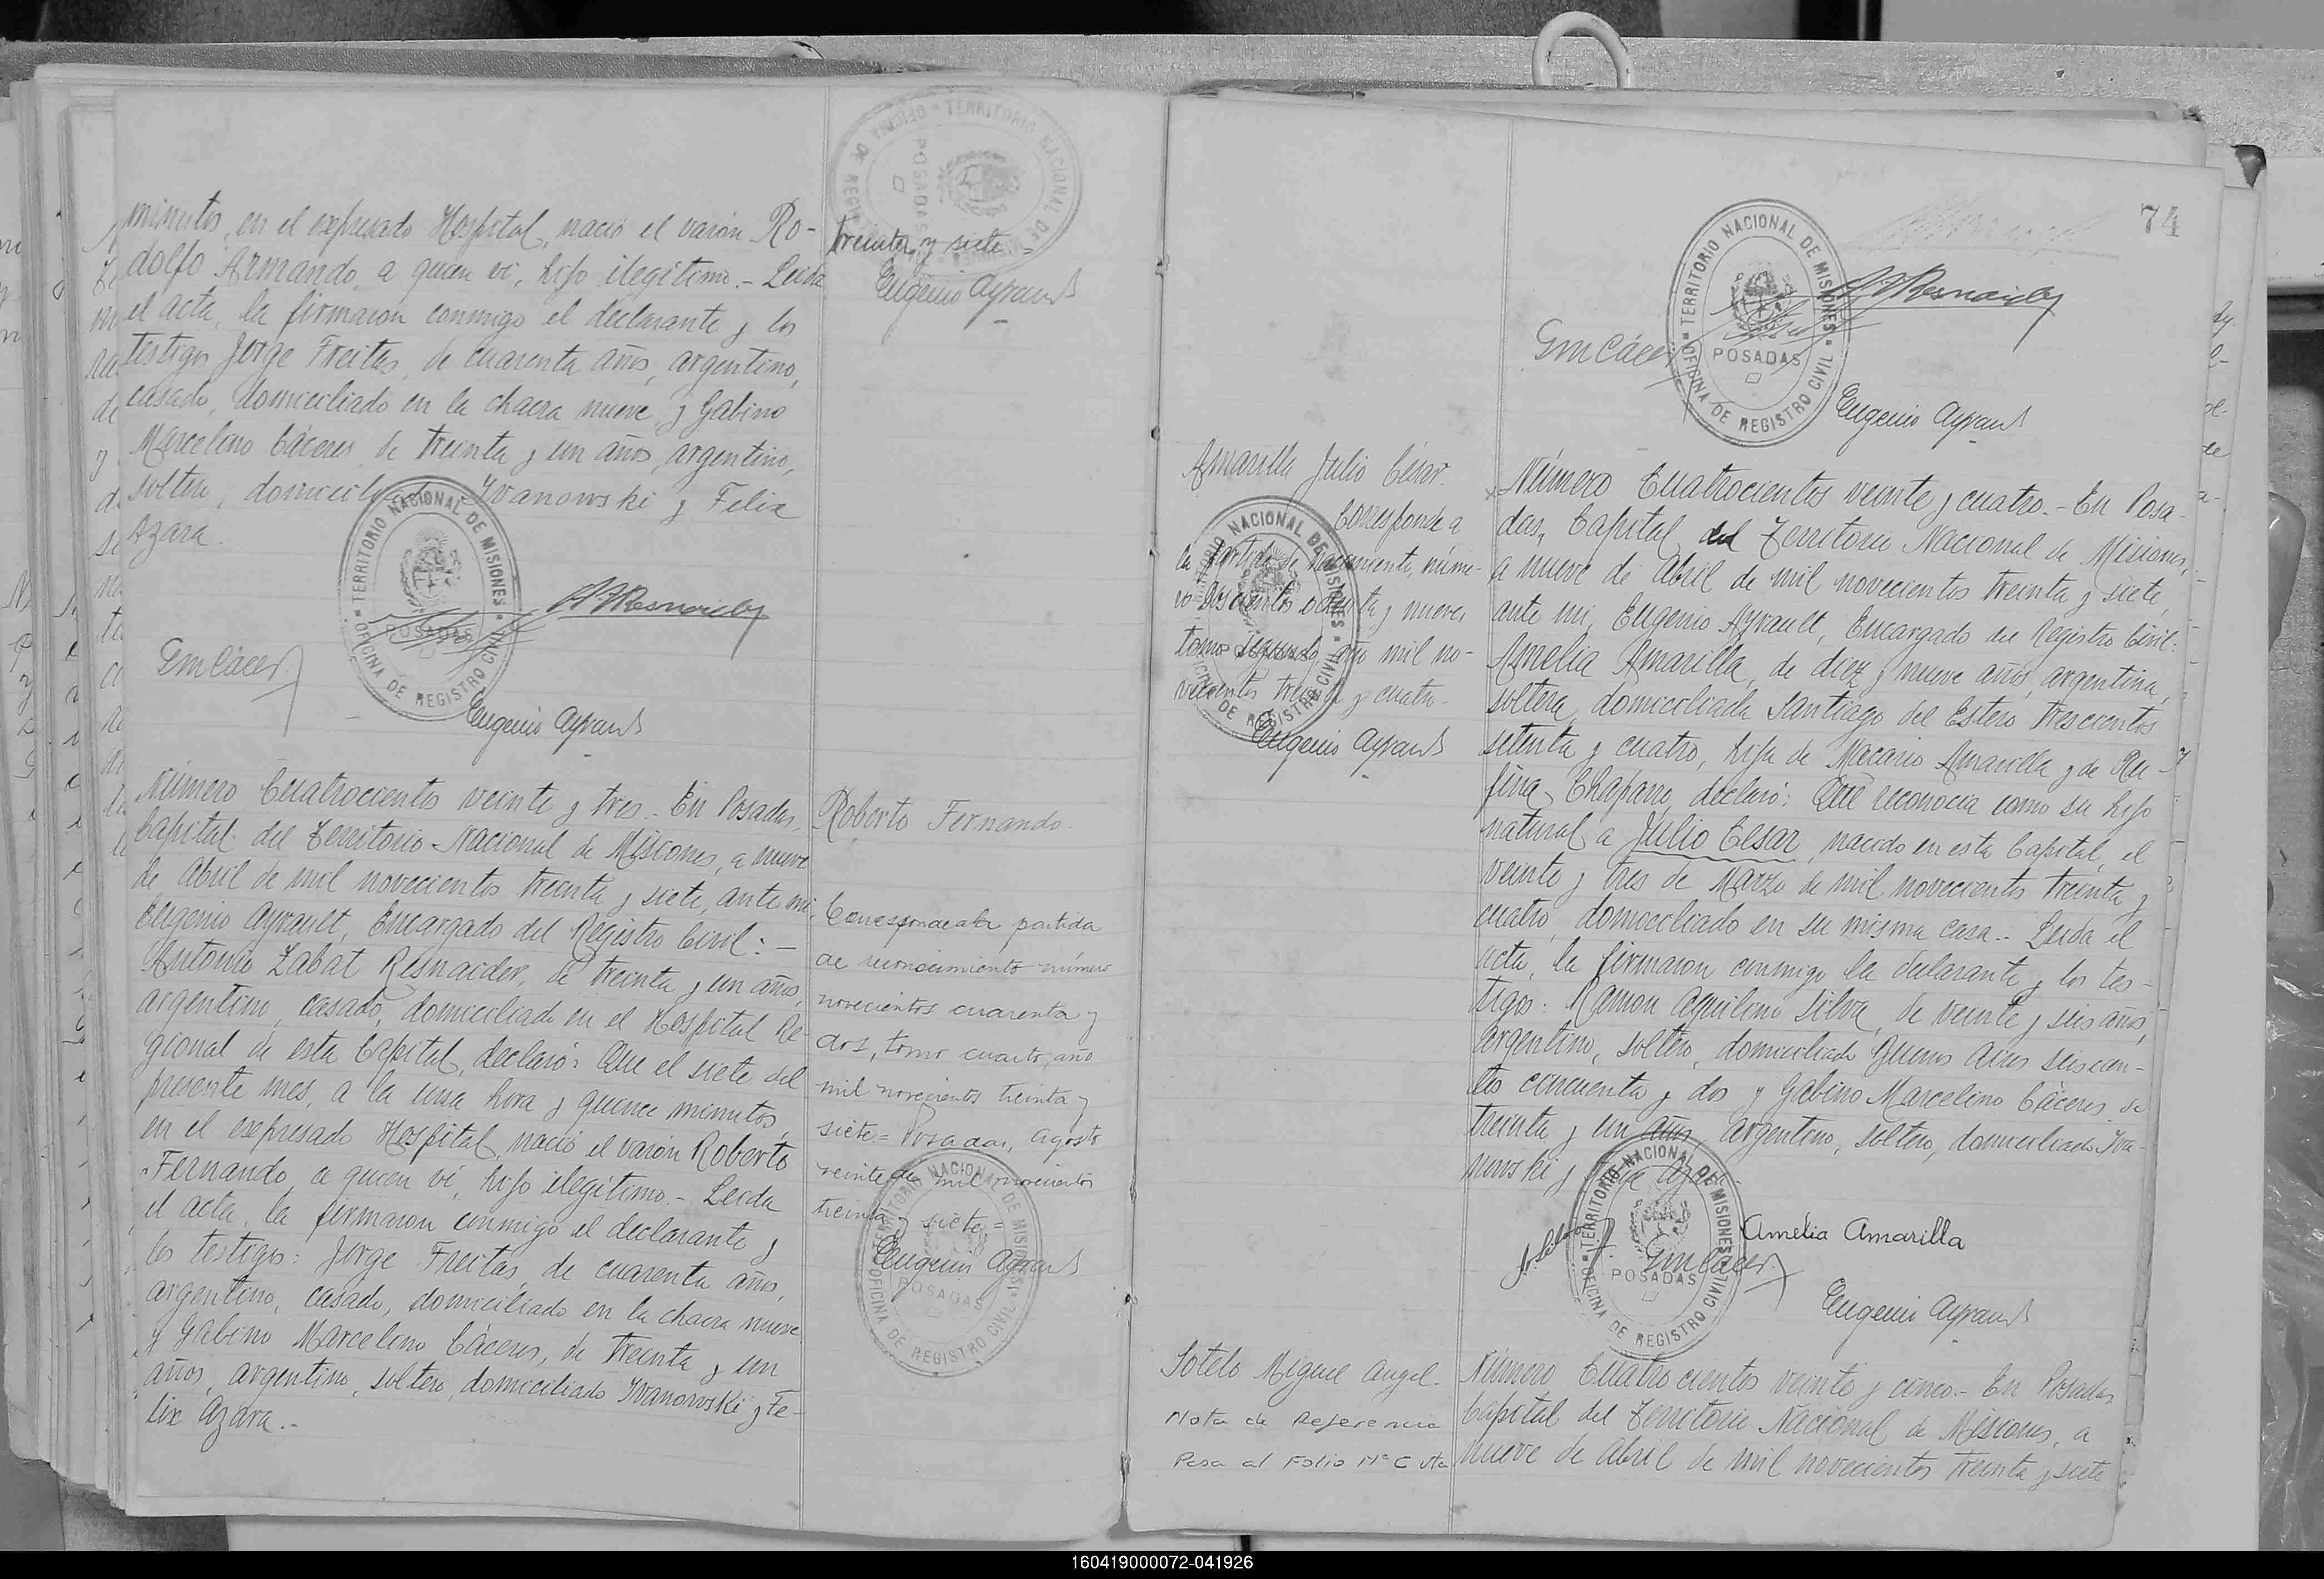 minutos, en el expresado Hospital, nació el varón Ro-
dolfo Armando, a quien vi, hijo ilegítimo.- Leida
el acta, la firmaron conmigo el declarante y los
testigos Jorge Freitas, de cuarenta años, argentino,
casado, domiciliado en la chacra nueve y Gabino
Marcelino Cáceres, de treinta y un años, argentino,
soltero, domiciliado Ivanowski y Felix
Azara.
TERRITORIO NACIONAL DE MISIONES
POSADAS
OFICINA DE REGISTRO CIVIL
GmCácer
Eugenio Ayrault
treinta y siete=
Eugenio Ayrault
TERRITORIO NACIONAL DE
POSADAS
OFICINA DE REGI
Número Cuatrocientos veinte y tres.- En Posadas,
Capital del Territorio Nacional de Misiones, a nueve
de Abril de mil novecientos treinta y siete, ante mi
Eugenio Ayrault, Encargado del Registro Civil:-
Antonio Labat Resnaider, de treinta y un años,
argentino, casado, domiciliado en el Hospital Re-
gional de esta Capital, declaró: Que el siete del
presente mes, a la una hora y quince minutos,
en el expresado Hospital, nació el varón Roberto
Fernando, a quien vi, hijo ilegítimo.- Leida
el acta, la firmaron conmigo el declarante y
los testigos: Jorge Freitas, de cuarenta años,
argentino, casado, domiciliado en la chacra nueve
y Gabino Marcelino Cáceres, de treinta y un
años, argentino, soltero, domiciliado Ivanowski y Fe-
lix Azara.-
Roberto Fernando.
Corresponde a la partida
de reconocimiento número
novecientos cuarenta y
dos, tomo cuarto, año
mil novecientos treinta y
siete= Posadas, Agosto
veinte de mil novecientos
treinta y siete=
Eugenio Ayrault
NACIONAL DE MISIONES
POSADAS
OFICINA DE REGISTRO CIVIL
74
TERRITORIO NACIONAL DE MISIONES
POSADAS
OFICINA DE REGISTRO CIVIL
GmCácer
Eugenio Ayrault
Amarilla Julio César.
Corresponde a
la partida de nacimiento, núme-
ro doscientos ochenta y nueve,
tomo segundo, año mil no-
vecientos treinta y cuatro.
Eugenio Ayrault
Número Cuatrocientos veinte y cuatro.- En Posa-
das, Capital del Territorio Nacional de Misiones,
a nueve de Abril de mil novecientos treinta y siete,
ante mi, Eugenio Ayrault, Encargado del Registro Civil:
Amelia Amarilla, de diez y nueve años, argentina,
soltera, domiciliada Santiago del Estero trescientos
setenta y cuatro, hija de Macario Amarilla y de Ru-
fina Chaparro, declaró: Que reconocia como su hijo
natural a Julio Cesar, nacido en esta Capital, el
veinte y tres de Marzo de mil novecientos treinta y
cuatro, domiciliado en su misma casa.- Leida el
acta, la firmaron conmigo la declarante y los tes-
tigos: Ramon Aquilino Silva, de veinte y seis años,
argentino, soltero, domiciliado Buenos Aires seiscien-
tos cincuenta y dos y Gabino Marcelino Cáceres, de
treinta y un años, argentino, soltero, domiciliado Iva-
nowski y Felix Azara.-
Amelia Amarilla
GmCácer
Eugenio Ayrault
TERRITORIO NACIONAL DE MISIONES
POSADAS
OFICINA DE REGISTRO CIVIL
Sotelo Miguel Angel.
Nota de Referencia
Pasa al Folio Nº
Número Cuatrocientos veinte y cinco.- En Posadas
Capital del Territorio Nacional de Misiones, a
nueve de Abril de mil novecientos treinta y siete
160419000072-041926